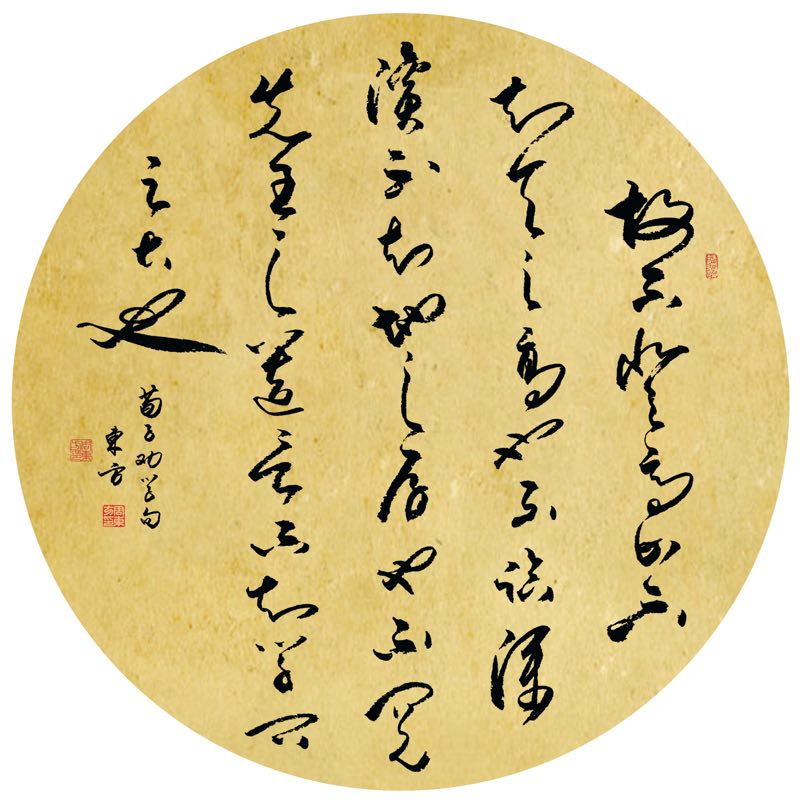 故不登高山不
知天之高也不临深
溪不知地之厚也不闻
先王之遗言不知学问
之大也
荀子劝学句
東方